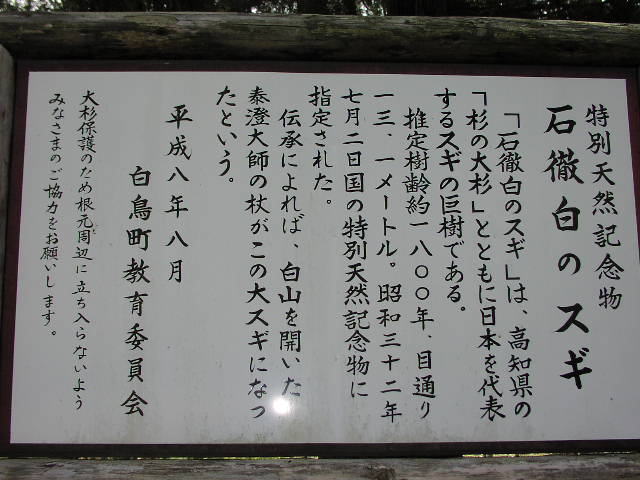 特別天然記念物
石徹白のスギ
「石徹白のスギ」は、高知県の
「杉の大杉」とともに日本を代表
するスギの巨樹である。
推定樹齢約一八〇〇年、目通り
一三、一メートル。昭和三十二年
七月二日国の特別天然記念物に
指定された。
伝承によれば、白山を開いた
泰澄大師の杖がこの大スギになっ
たという。
平成八年八月
白鳥町教育委員会
大杉保護のため根元周辺に立ち入らないよう
みなさまのご協力をお願いします。